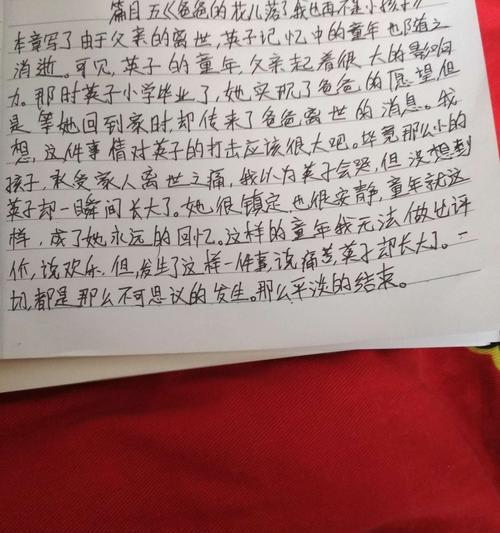 篇目五《爸爸的花儿落了我也再不是小孩子》
本章写了由于父亲的离世,英子记忆中的童年也随之
消逝。可见,英子的童年,父亲起着很大的影响
力。那时英子小学毕业了,她实现了爸爸的愿望但
是等她回到家时,却传来了爸爸离世的消息。我
想,这件事情对英子的打击应该很大吧。毕竟那么小的
孩子,承受家人离世之痛,我以为英子会哭,但没想到
英子却一瞬间长大了。她很镇定,也很安静,童年就这
样,成了她永远的回忆。这样的童年我无法做出评
价,说欢乐,但,发生了这样一件事,说痛苦,英子却长大了。一
切,都是那么不可思议的发生。那么平淡的结束。